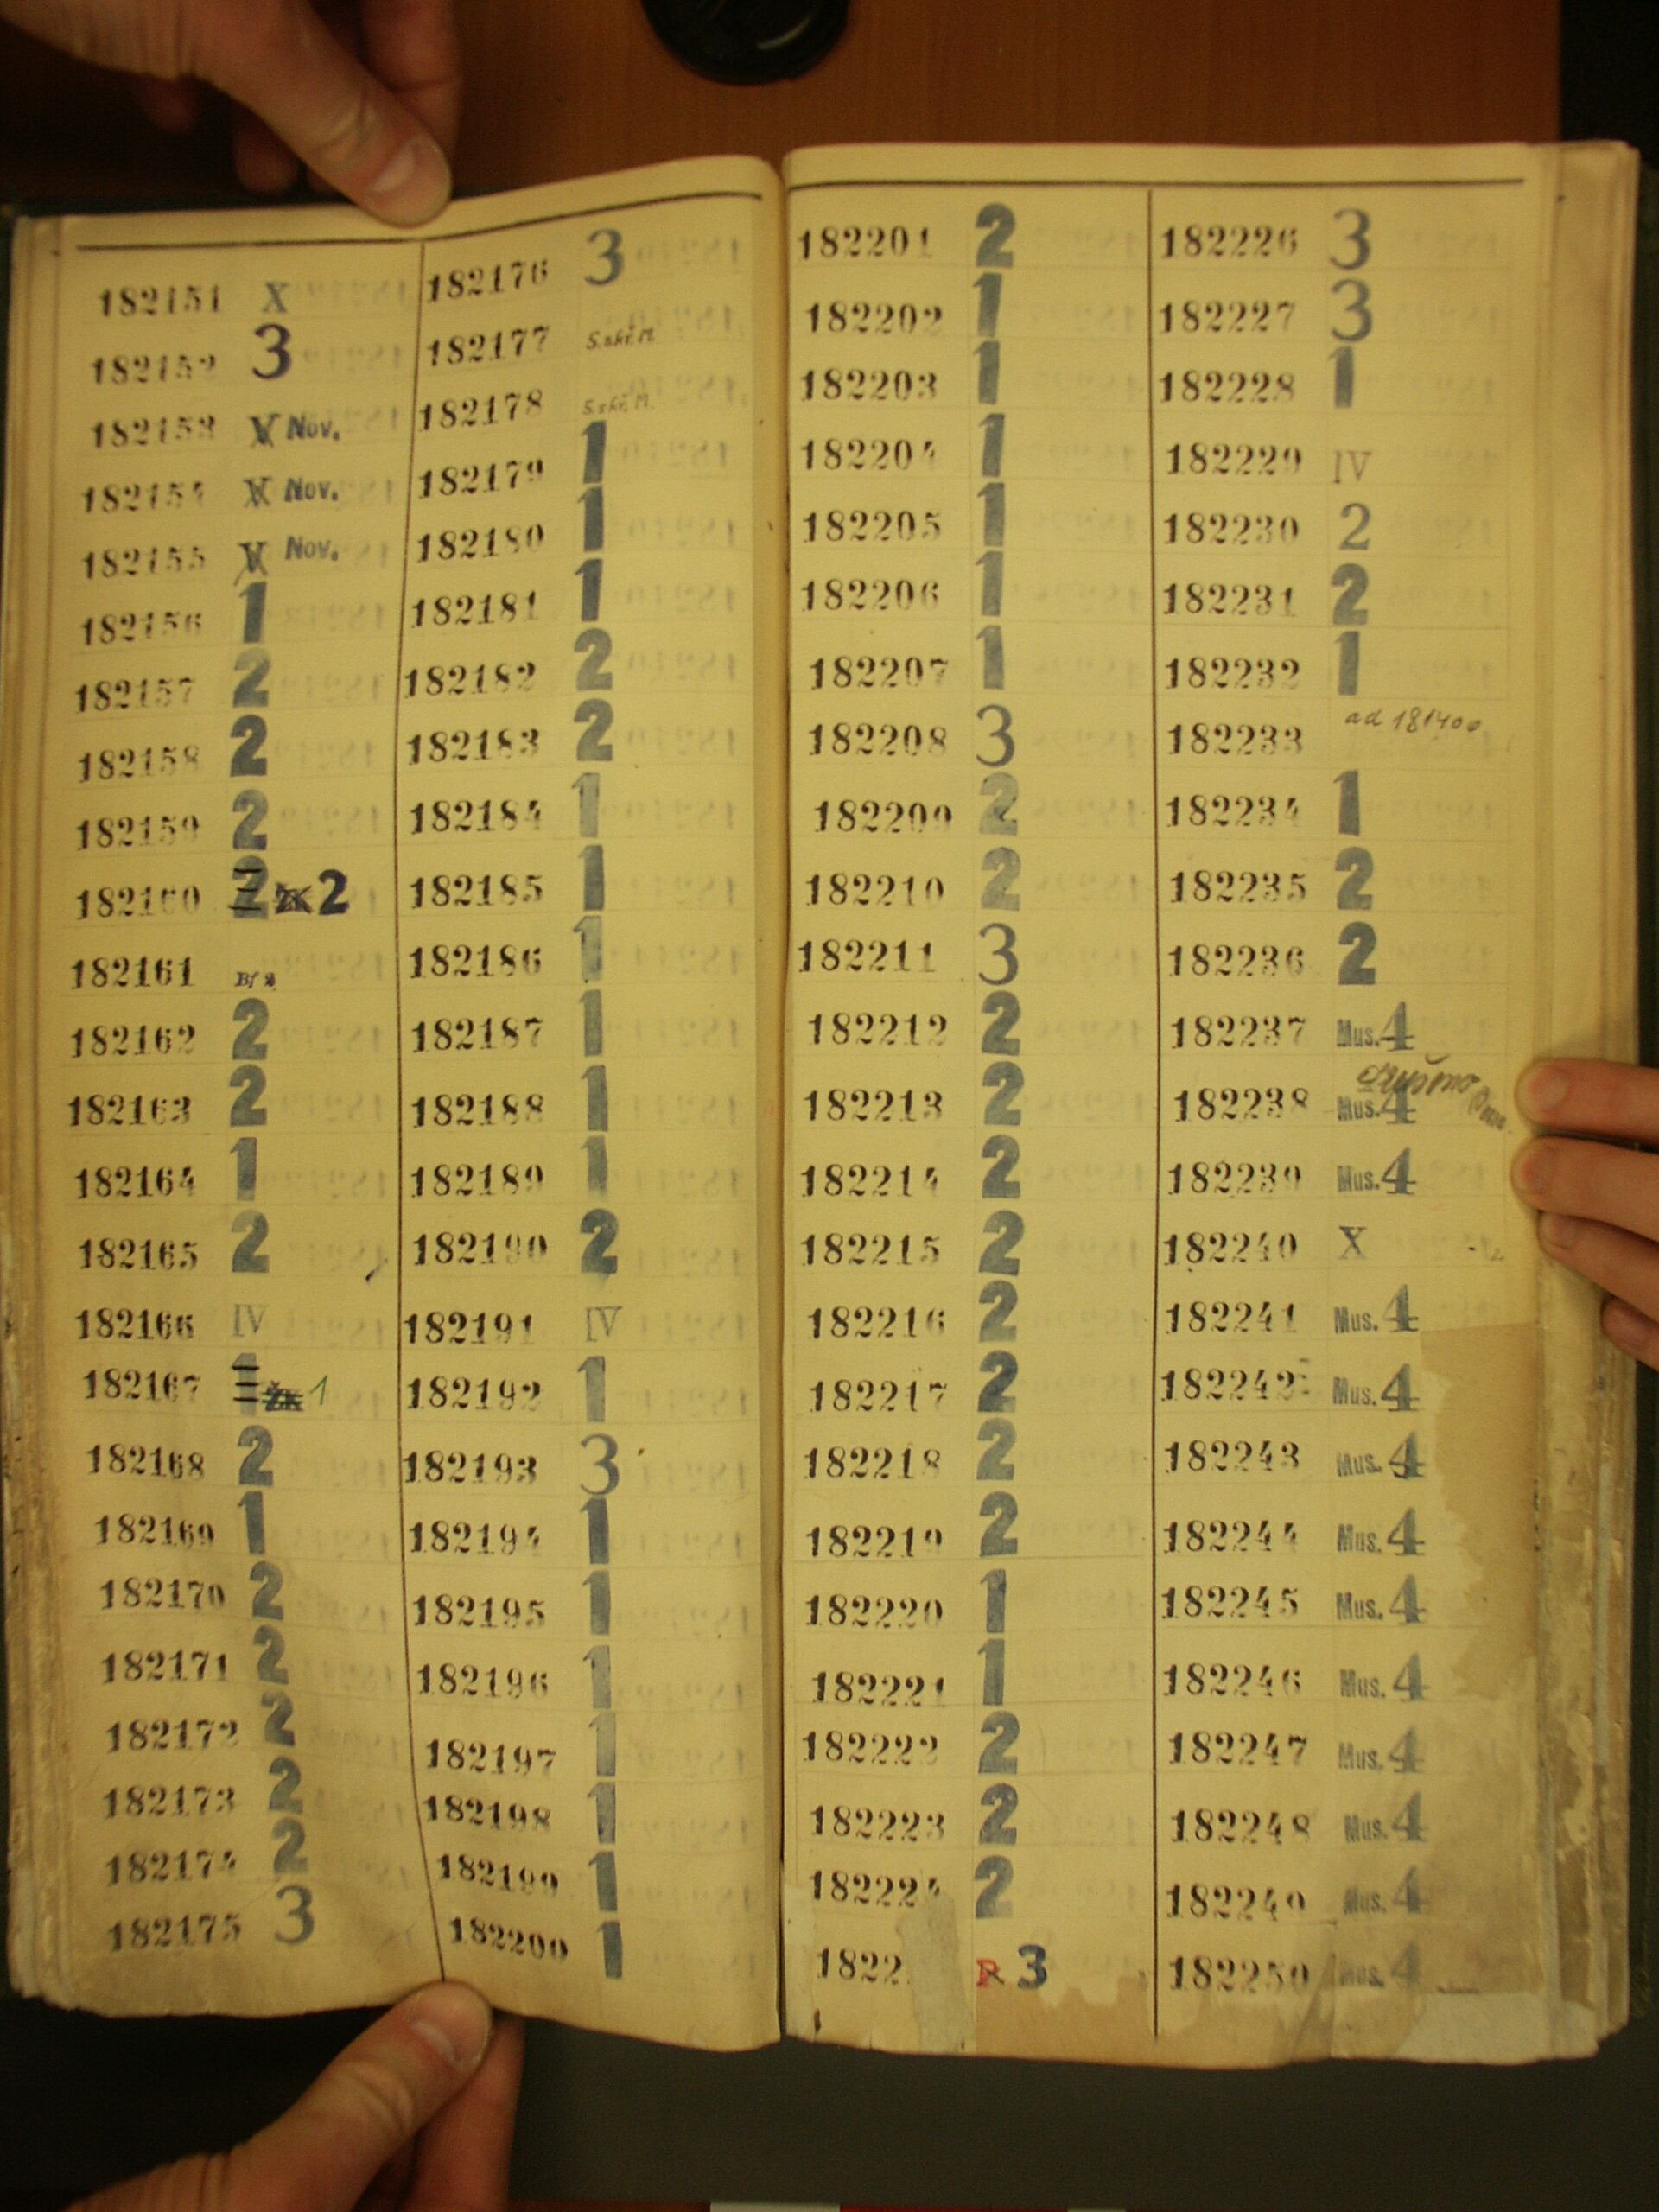 182151 X
182152 3
182153 V Nov.
182154 X Nov.
182155 V Nov.
182156 1
182157 2
182158 2
182159 2
182160 2 ŽK 2
182161
182162 2
182163 2
182164 1
182165 2
182166 IV
182167 1 ŽK 1
182168 2
182169 1
182170 2
182171 2
182172 2
182173 2
182174 2
182175 3
182176 3
182177 S.skř.M.
182178 S.skř.M.
182179 1
182180 1
182181 1
182182 2
182183 2
182184 1
182185 1
182186 1
182187 1
182188 1
182189 1
182190 2
182191 IV
182192 1
182193 3
182194 1
182195 1
182196 1
182197 1
182198 1
182199 1
182200 1
182201 2
182202 1
182203 1
182204 1
182205 1
182206 1
182207 1
182208 3
182209 2
182210 2
182211 3
182212 2
182213 2
182214 2
182215 2
182216 2
182217 2
182218 2
182219 2
182220 1
182221 1
182222 2
182223 2
182224 2
1822 R 3
182226 3
182227 3
182228 1
182229 IV
182230 2
182231 2
182232 1
182233 ad 181400
182234 1
182235 2
182236 2
182237 Mus. 4
182238 Mus. 4
182239 Mus. 4
182240 X
182241 Mus. 4
182242 Mus. 4
182243 Mus. 4
182244 Mus. 4
182245 Mus. 4
182246 Mus. 4
182247 Mus. 4
182248 Mus. 4
182249 Mus. 4
182250 Mus. 4